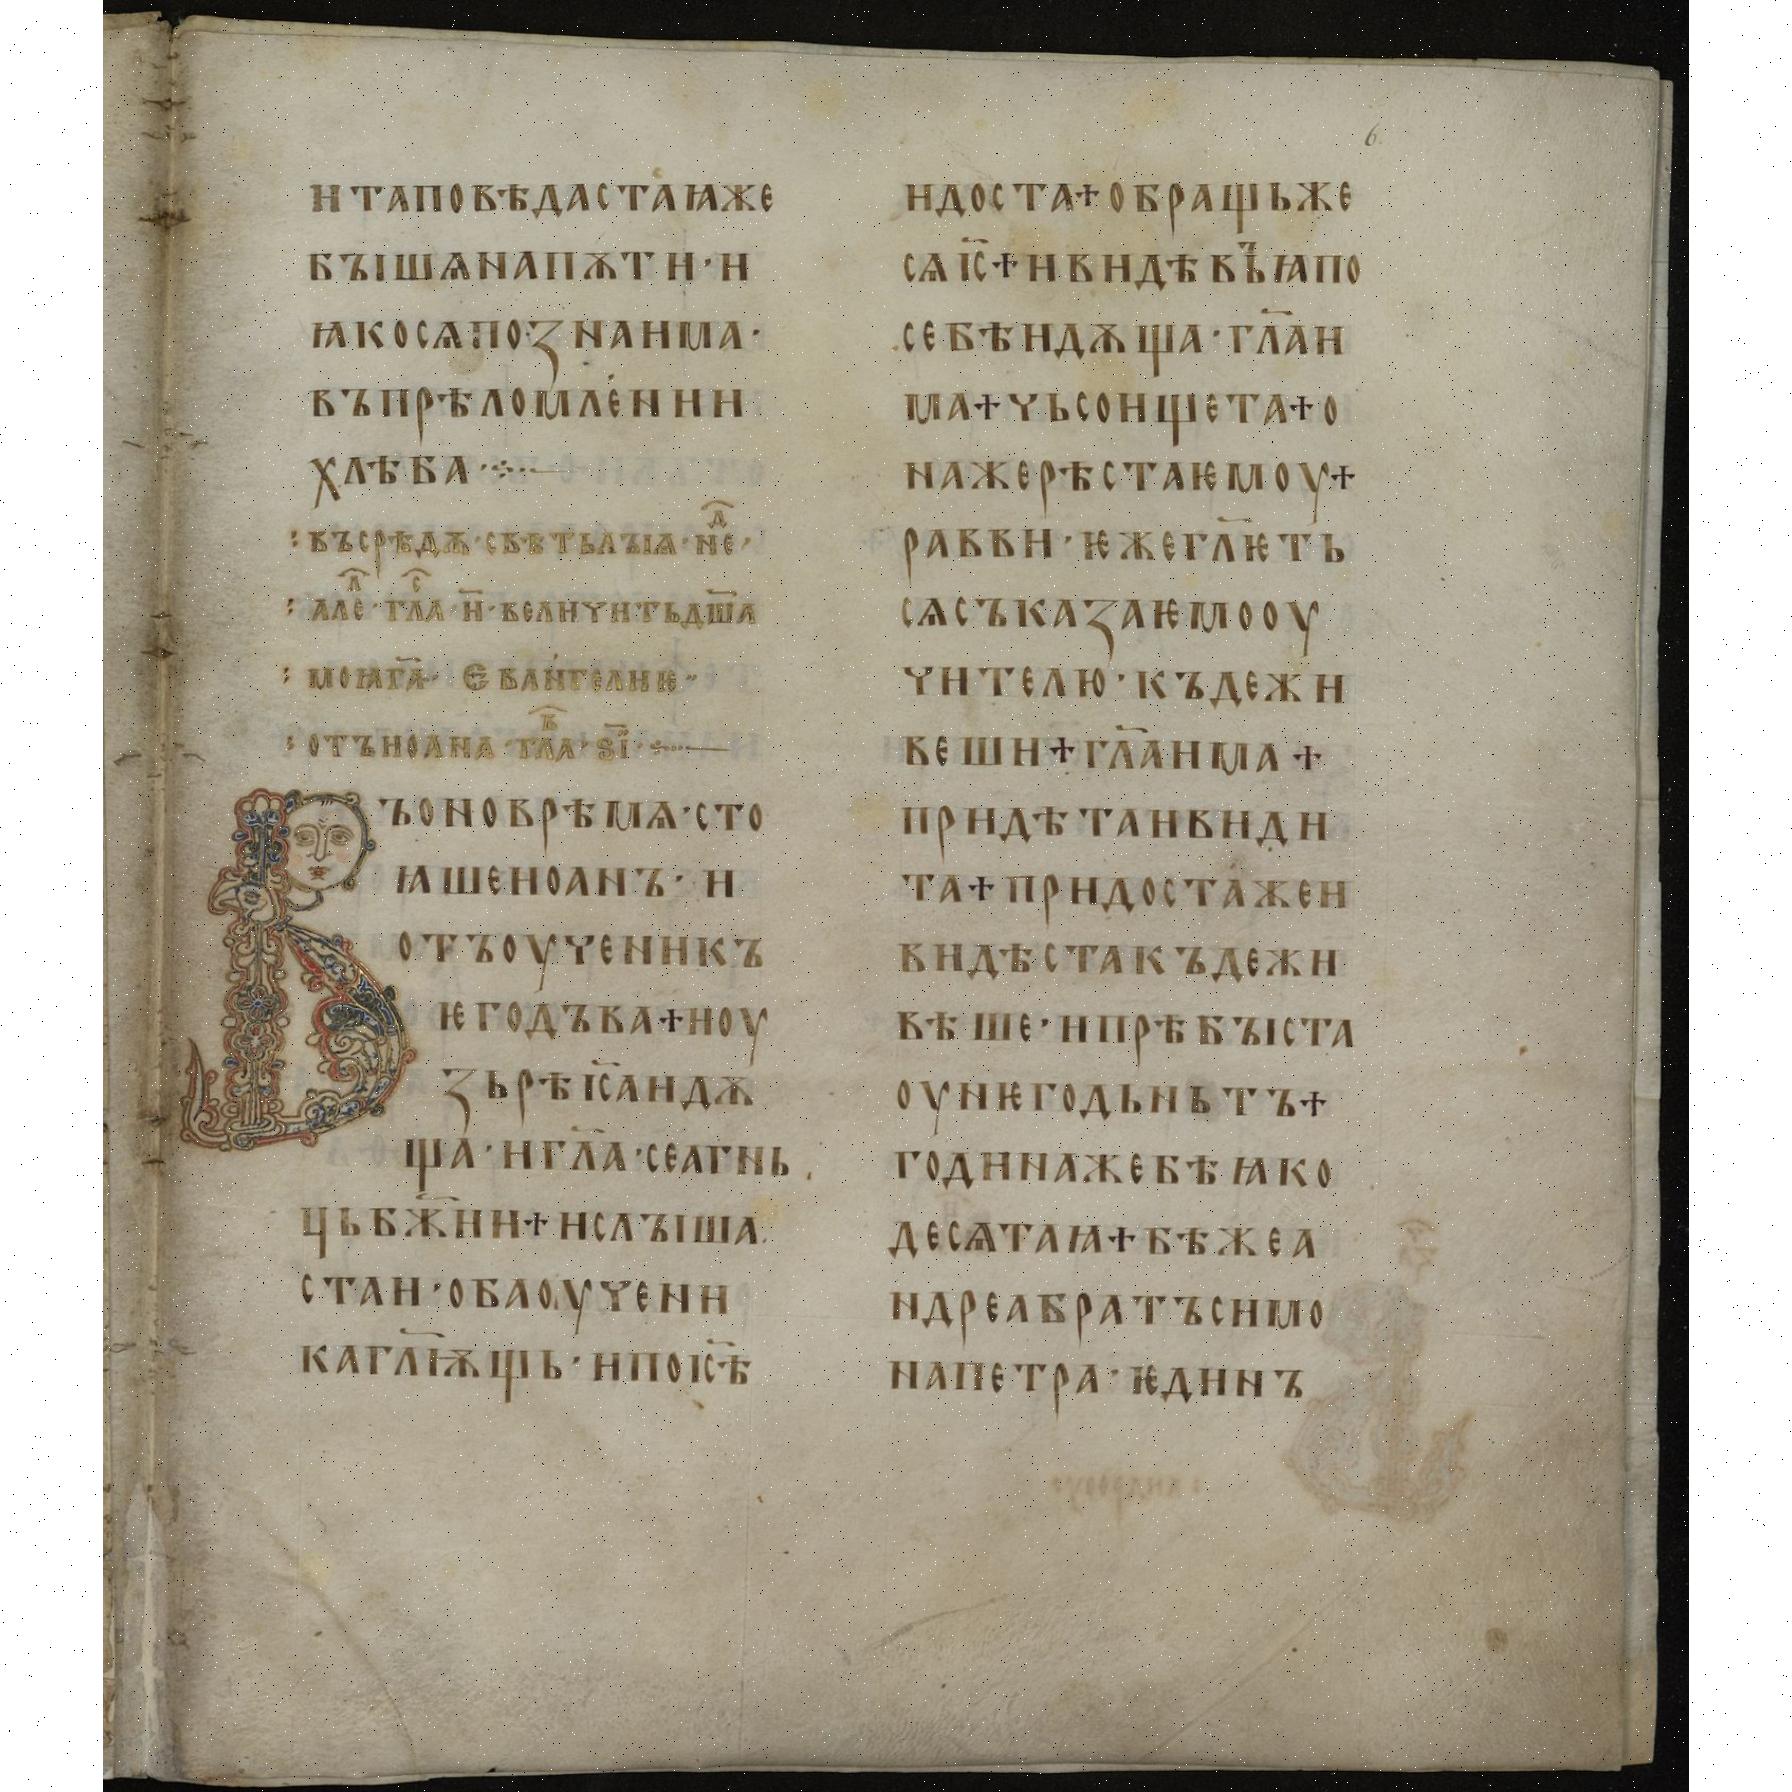 6
и та повѣдаста ꙗже
бꙑшѧ на пѫти · и
ꙗко сѧ позна има ·
въ прѣломлении
хлѣба ·
въ срѣдѫ · свѣтьлꙑѩ · не҃д ·
але҃л · гла҃с · н҃ · величить дш҃а
моꙗ г҃а · Еваньгелиѥ ·
отъ иоана · гла҃в · ѕ҃ı ·
Въ оно врѣмѧ · сто
ꙗше иоанъ · и
отъ оученикъ
ѥго дъва + и оу
зьрѣ іс҃а идѫ
ща · и гл҃а · се агнь
ць бж҃ии + и слꙑша
ста и · оба оучени
ка гл҃ѭщь · и по іс҃ѣ
идоста + обращь же
сѧ іс҃ + и видѣвъ ꙗ по
себѣ идѫща · гл҃а и
ма + чьсо ищета + о
на же рѣста ѥмоу +
равви · ѥже гл҃ѥть
сѧ съказаѥмо оу
чителю · къде жи
веши + гл҃а има +
придѣта и види
та + придоста же и
видѣста къде жи
вѣше · и прѣбꙑста
оу него дьнь тъ +
година же бѣ ꙗко
десѧтаꙗ + бѣ же а
ндреа братъ симо
на петра · ѥдинъ